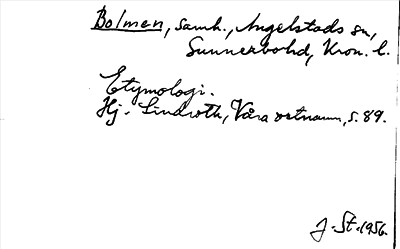 Bolmen, samh., Angelstads sn,
Sunnerbohd, Kron. l.
Etymologi.
Hj. Lindroth, Våra ortnamn, s. 89.
J. St. 1956.